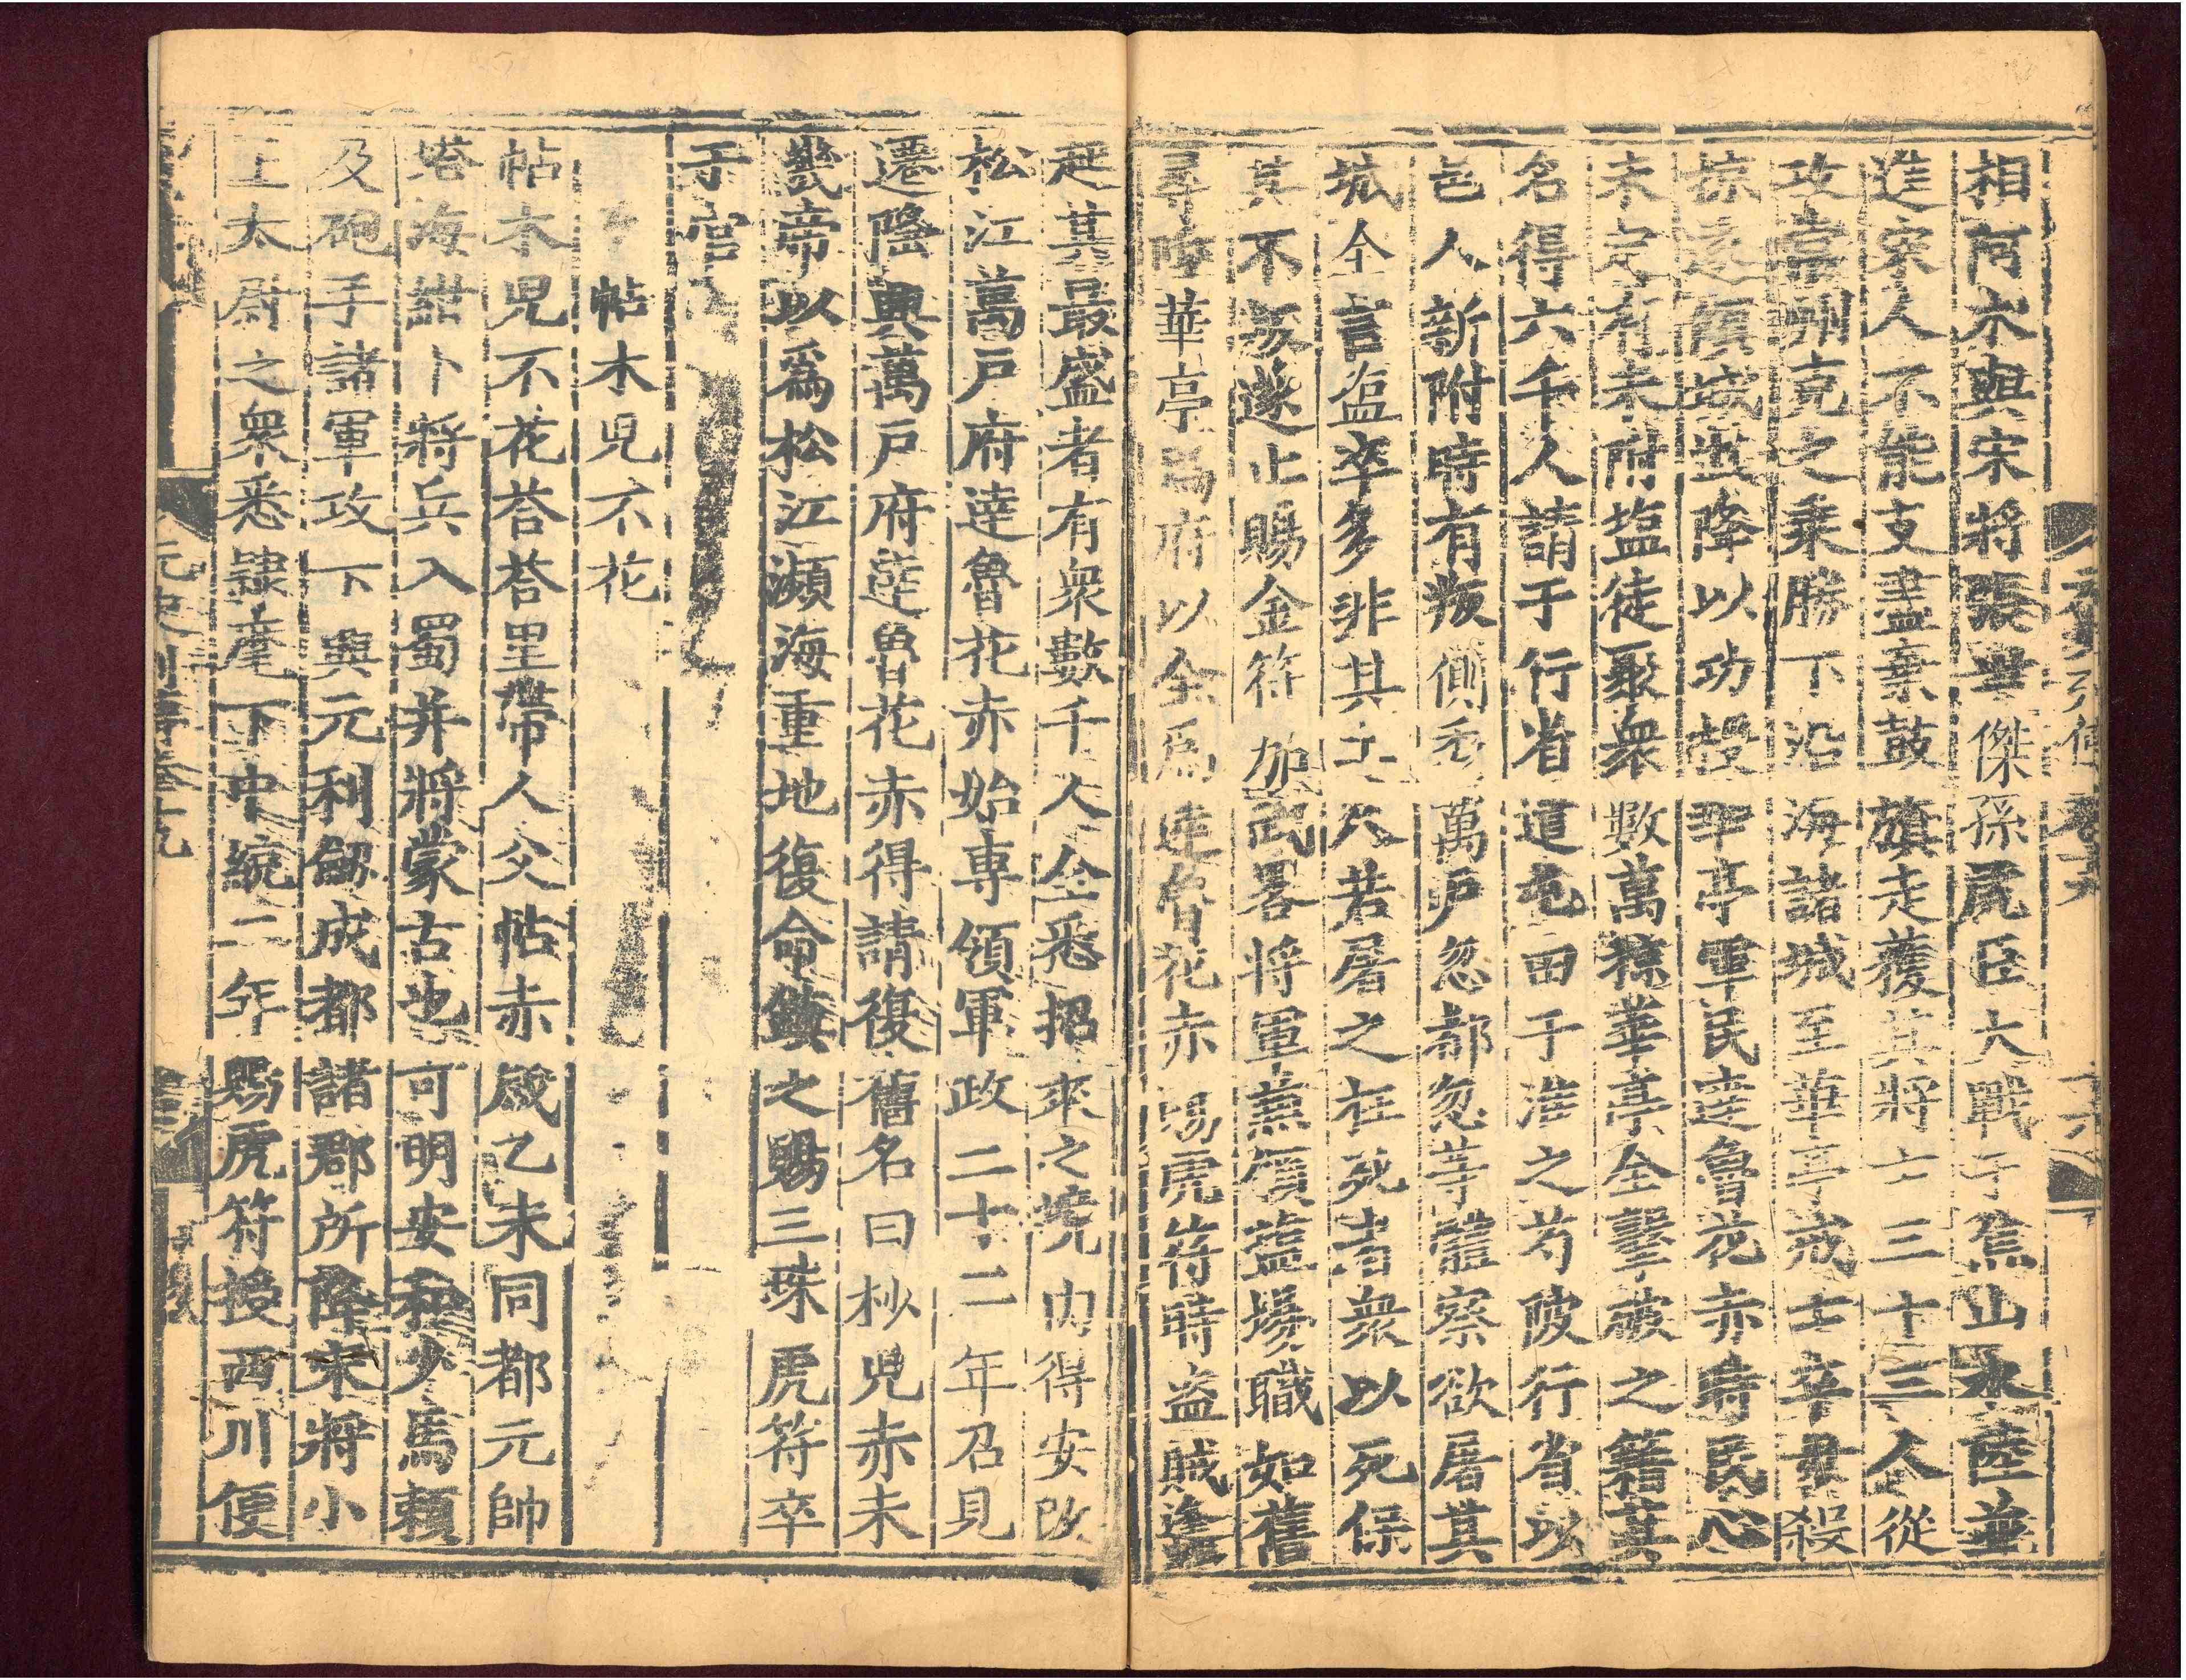 相阿木與宋將張世傑孫虎臣大戰于焦山水陸並
進宋人不能支盡棄鼓旗走獲其將士三十三人從
攻常州克之乘勝下沿海諸城至華亭戒士卒毋殺
掠遂傾城出降以功授華亭軍民達魯花赤時民心
未定有未附盐徒聚衆數萬掠華亭全擊破之籍其
名得六千人請于行省遣屯田于淮之芍陂行省以
邑人新附時有叛側委萬戶忽都忽等體察欲屠其
城全言盗卒多非其土人若屠之枉死者衆以死保
其不叛遂止賜金符加武畧將軍兼領盐場職如舊
尋陞華亭爲府以全爲達魯花赤賜虎符時盗賊蜂
起其最盛者有衆數千人全悉招來之境内得安改
松江萬戶府達魯花赤始專領軍政二十二年召見
遷隆興萬戶府達魯花赤得請復舊名曰杪兒赤未
幾帝以爲松江瀕海重地復命鎮之賜三珠虎符卒
于官
帖木兒不花
帖木兒不花荅荅里帶人父帖赤歲乙未同都元帥
塔海紺卜將兵入蜀并將蒙古也可明安和少馬頼
及砲手諸軍攻下興元利劒成都諸郡所降宋將小
王太尉之衆悉隸麾下中統二年賜虎符授西川便
元史列傳卷十九